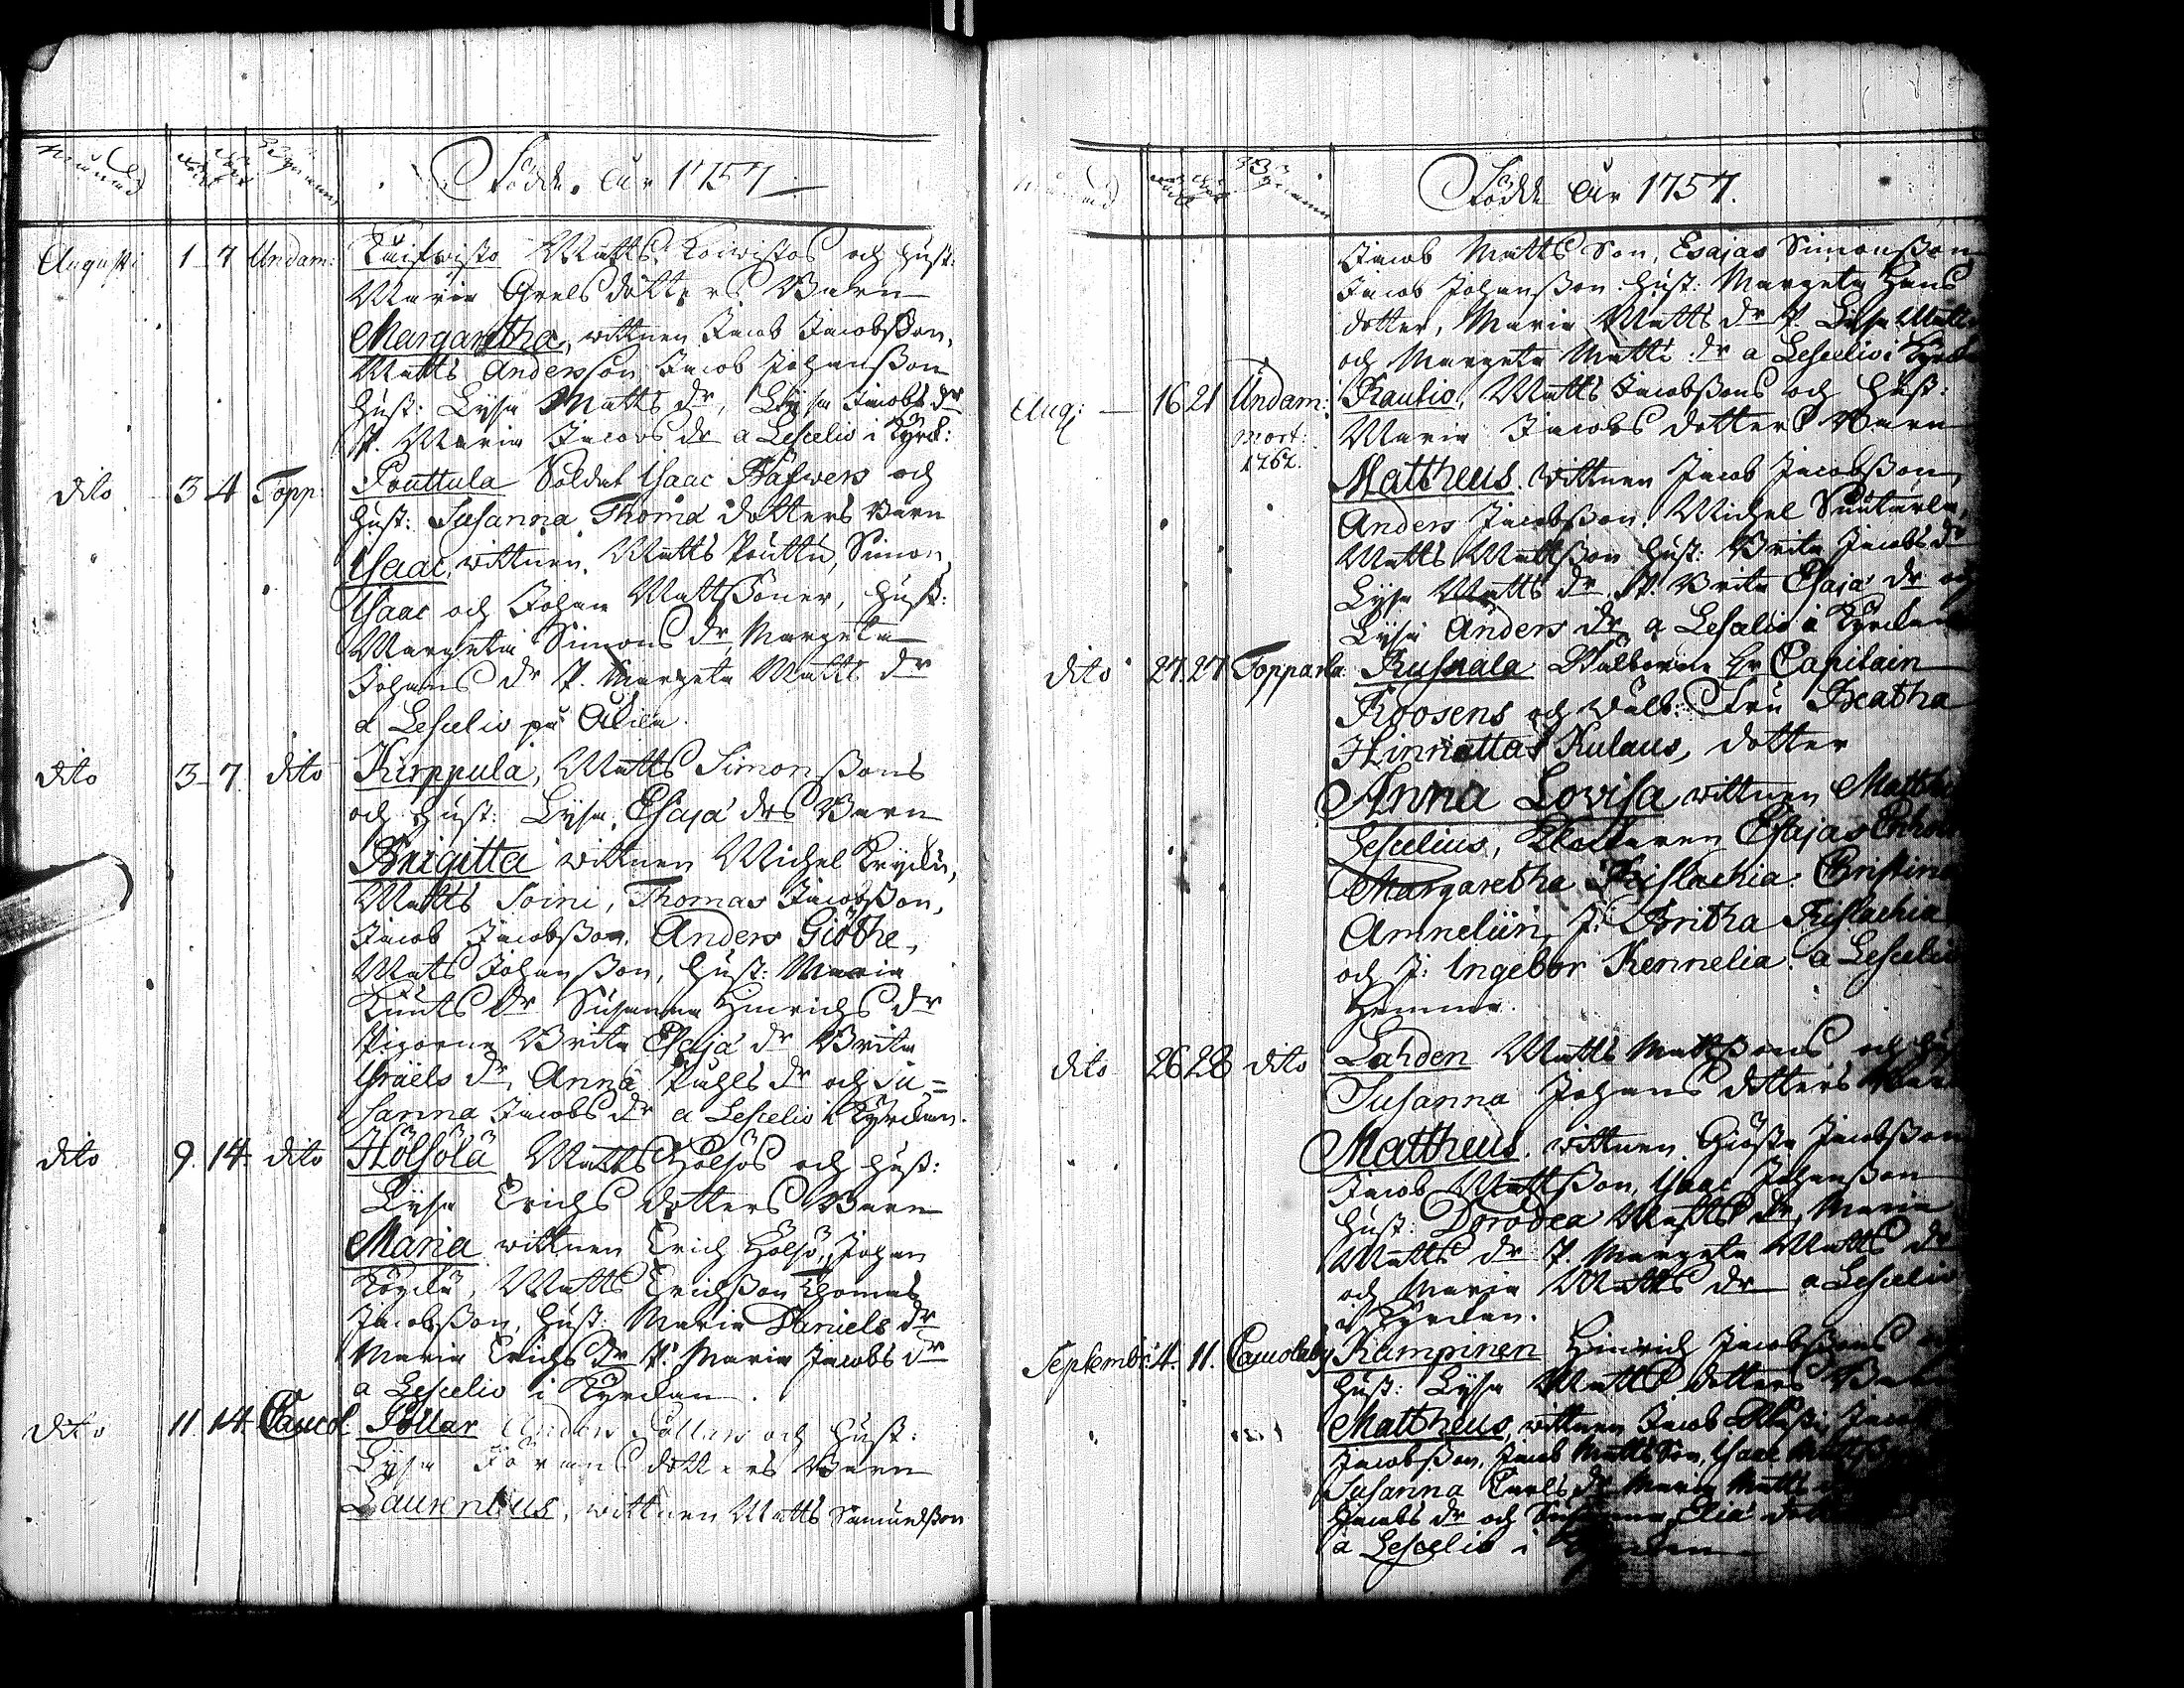 Månad
Född
Döpt
Bynamn
Födde År 1757
Augusti 1 7 Undam: Kuifwisto Matts Koiwistos och hust:
Maria Grels dotters Barn
Margaretha, wittnen Jacob Jacobsson,
Matts Andersson, Jacob Johansson
hust: Lysa Matts dr, Lysa Jacobs dr
P. Maria Jacobs dr a Lescelio i Kyrck:
dito 3 4 Topp: Pouttula Soldat Isaac Häfwers och
hust: Susanna Thomæ dotters Barn
Isaac, wittnen Matts Pouttu, Simon,
Isaac och Johan Mattssöner, hust:
Margeta Simons dr, Margeta
Johans dr P. Margeta Matts dr
a Lescelio på
dito 3 7 dito Kirppula, Matts Simonssons
och hust: Lysa Esajæ drs Barn
Brigitta wittnen Michel Krycku,
Matts Soini, Thomas Jacobsson,
Jacob Jacobsson, Anders Giöthe,
Matts Johansson, hust: Maria
Knuts dr Susanna Hinrichs dr
Pigorne Brita Esajæ dr Brita
Israels dr, Anna dr och Su=
sanna Jacobs dr a Lescelio i Kyrckan.
dito 9. 14. dito Hölsölä Matts Hölsös och hust:
Lysa Erichs dotters Barn
Maria wittnen Erich Hölsö, Johan
Matts Erichsson Thomas
Jacobsson, hust: Maria Daniels dr
Maria Erichs dr P. Maria Jacobs dr
a Lescelio i Kyrckan.
dito 11. 14. Caucol: Pollar Anders Pollars och hust:
Lysa dotters Barn
Laurentius, wittnen Matts Samuelsson
Födde År 1757.
Jacob Matts Son, Esajas Simonsson
Jacob Johansson hust: Margeta Hans
dotter, Maria Matts dr P. Lysa Matts
och Margeta Matts dr a Lescelio i Kyrck
Aug: 16 21 Undam: Kaulio, Matts Jacobssons och hust:
mort: 1762. Maria Jacobs dotters Barn
Mattheus. wittnen Jacob Jacobsson,
Anders Jacobsson, Michel
Matts Mattsson hust: Brita Jacobs dr
Lysa Matts dr, P. Brita Esajæ dr och
Lysa Anders dr a Lescelio i Kyrckan
dito 27. 27 Topparla Kusnala Wälborne Hr Capitain
Roosens och Wälb: Fru Beatha
Hinriettas Kulaus, dotter
Anna Lovisa wittnen Matth
Lescelius, Esajas
Margaretha Kislachia. Christina
Amneliin, J. Britha Kislachia
och J: Ingebor Kennelia. a Lescelio
Hemma.
dito 26 28 dito Lahden Matts Mattssons och hu
Susanna Johans dotters Barn
Mattheus. wittnen Giösta Jacobsson
Jacob Mattsson, Isaac Johansson
hust: Dorodea Matts dr, Maria
Matts dr P. Margeta Matts dr
och Maria Matts dr a Lescelio
i Kyrckan.
Septembr: 4. 11. Caucolaby Kampinen Hinrich Jacobssons och
hust: Lysa Matts dotters Barn
Mattheus, wittnen Jacob
Jacobsson, Jacob Matts Son, Isaac
Susanna Carls dr Maria Matts
Jacobs dr och Susanna Eliæ dotter
a Lescelio i Kyrckan